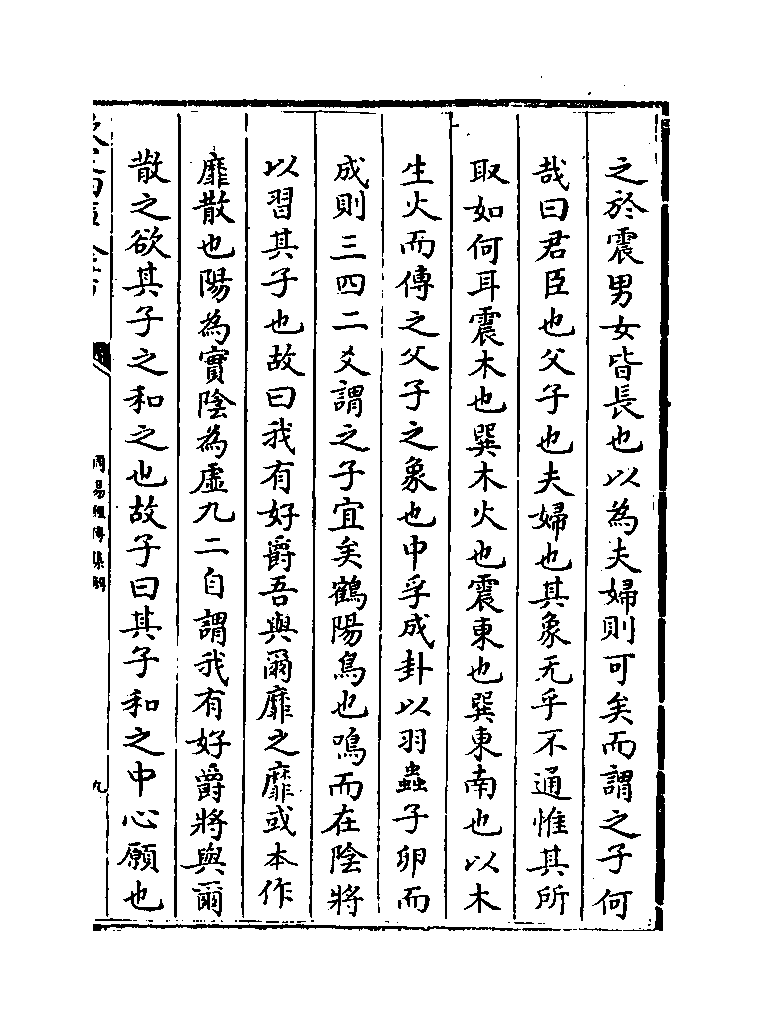 之於震男女皆長也以為夫婦則可矣而謂之子何
哉曰君臣也父子也夫婦也其象无乎不通惟其所
取如何耳震木也巽木火也震東也巽東南也以木
生火而傳之父子之象也中孚成卦以羽蟲子卵而
成則三四二爻謂之子宜矣鶴陽鳥也鳴而在陰將
以習其子也故曰我有好爵吾與爾靡之靡或本作
靡散也陽為實陰為虛九二自謂我有好爵將與爾
散之欲其子之和之也故子曰其子和之中心願也
周易經傳集解
九